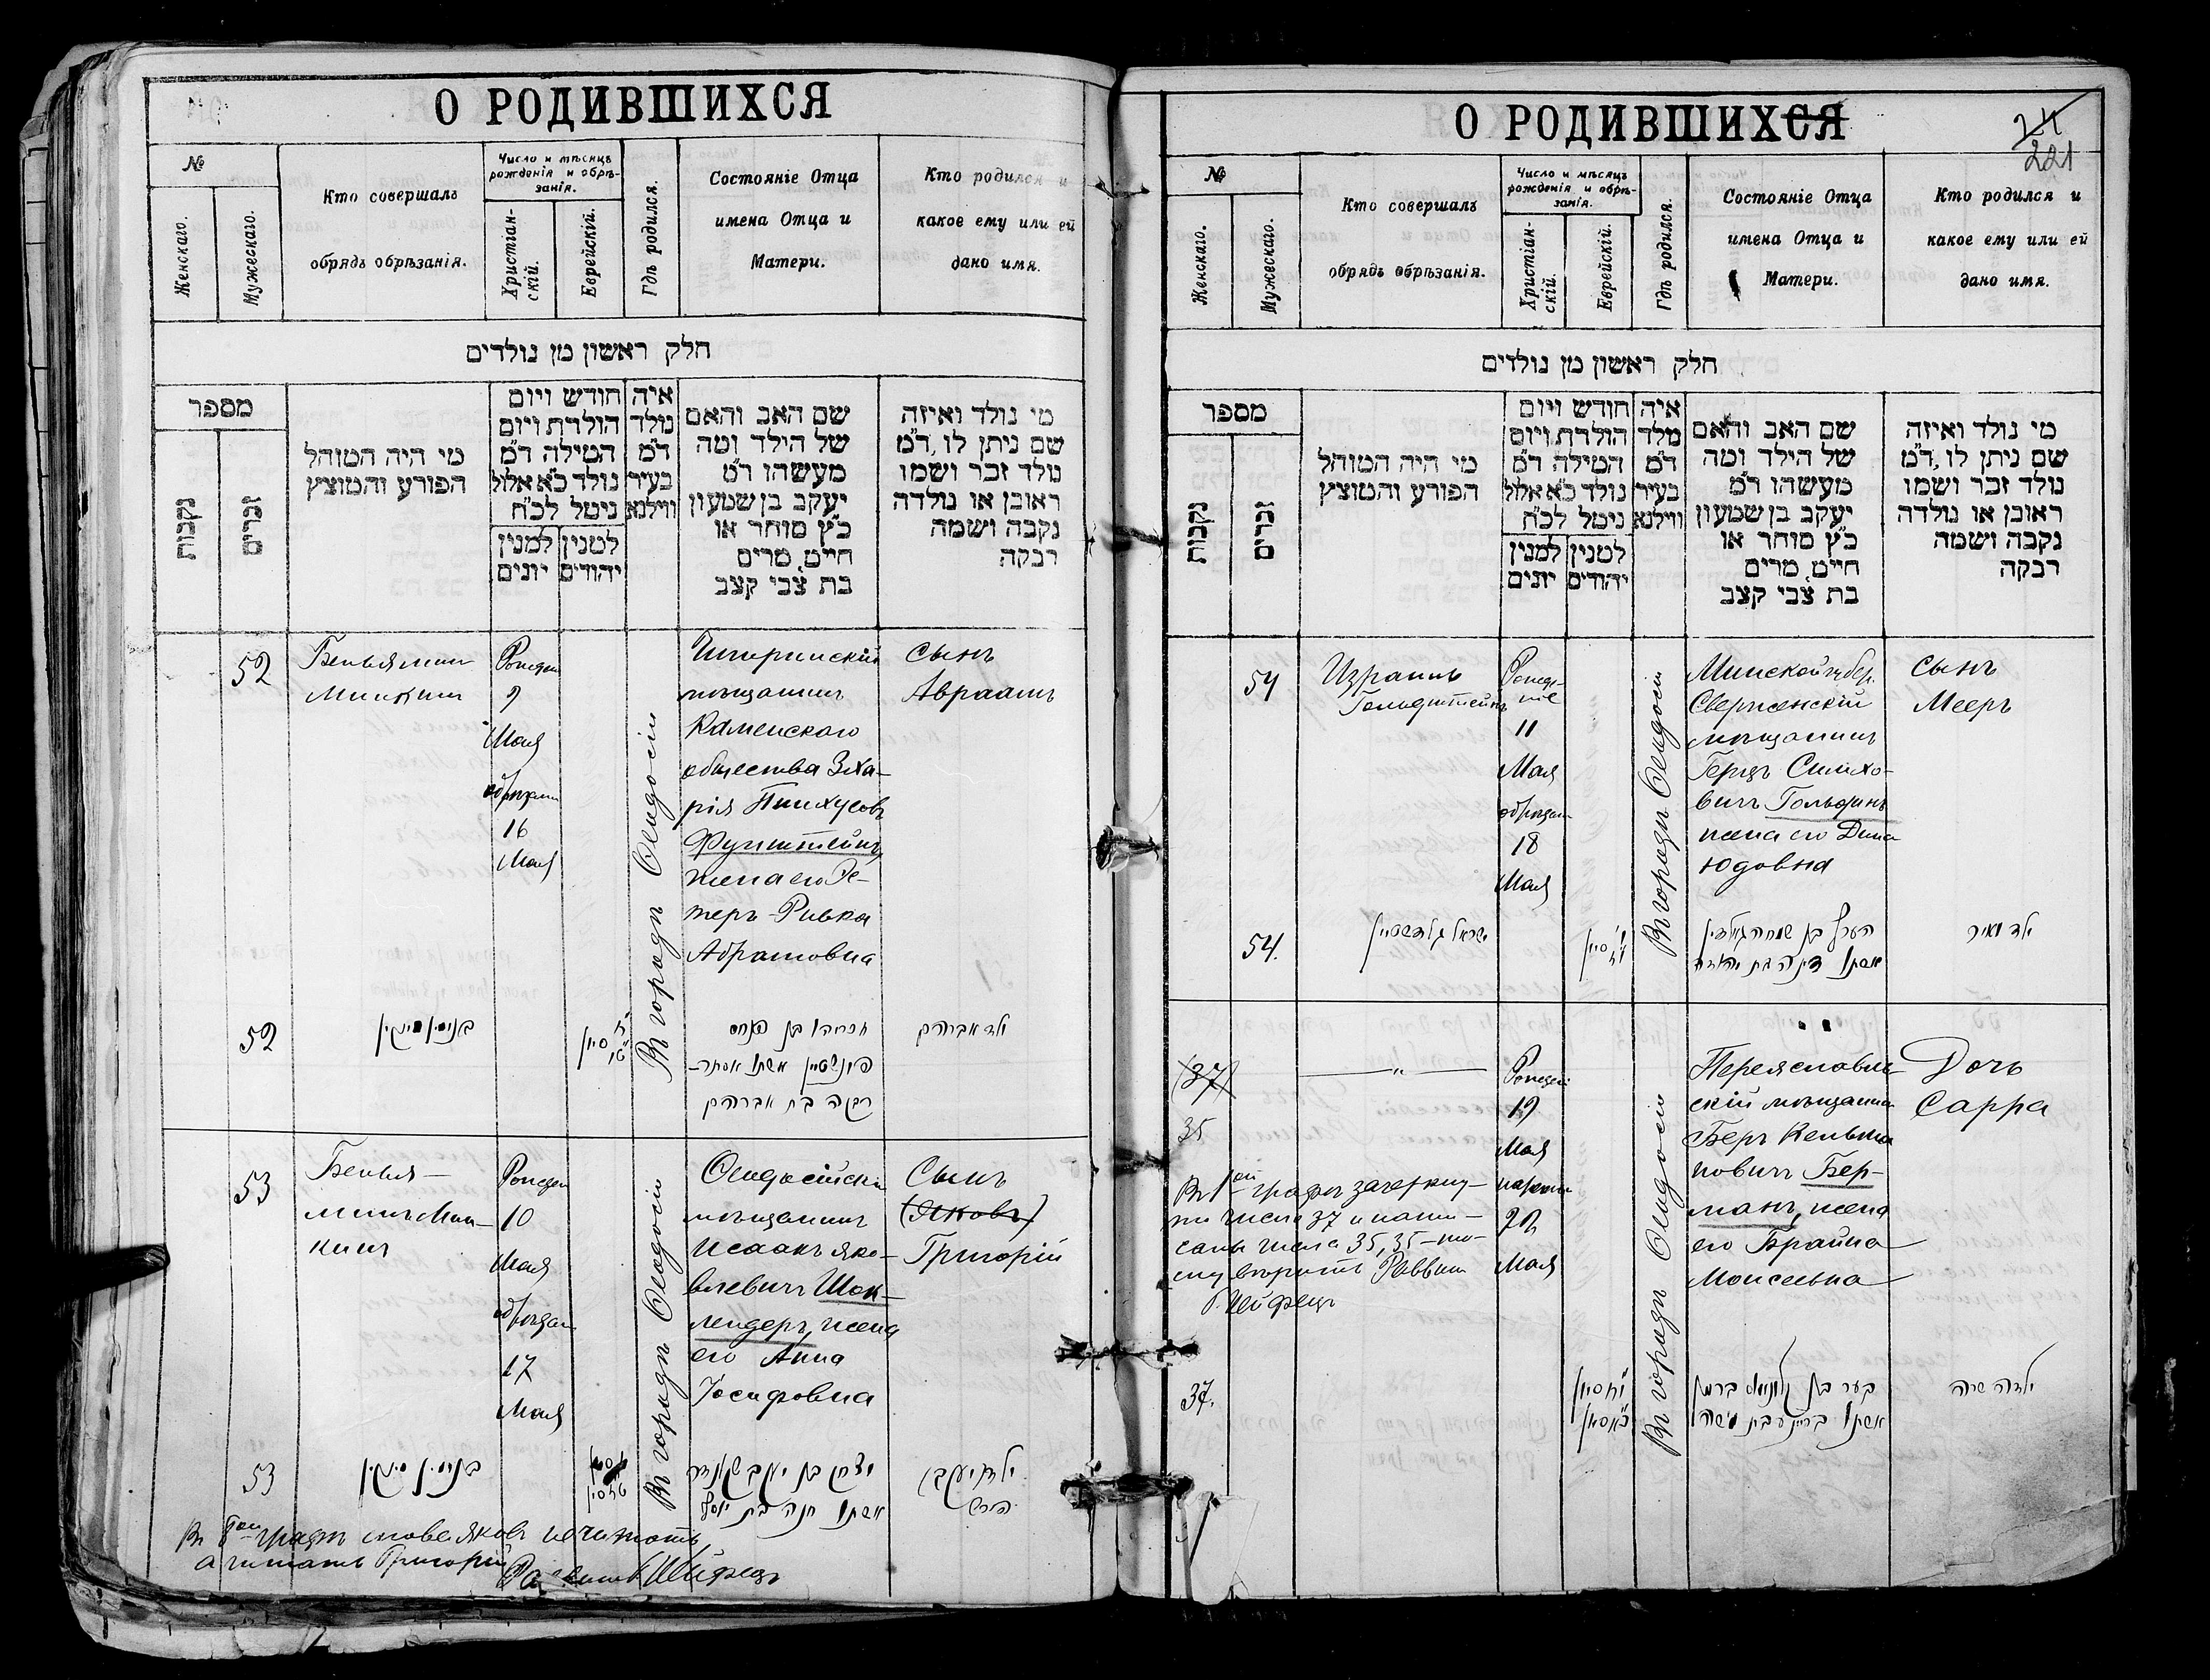 О РОДИВШИХСЯ
№
Женскаго.
Мужескаго.
Кто совершалъ
обрядъ обрѣзанія.
Число и мѣсяцъ
рожденія и обрѣ-
занія.
Христіан-
скій.
Еврейскій.
Гдѣ родился.
Состояніе Отца
имена Отца и
Матери.
Кто родился и
какое ему или ей
дано имя.
חלק ראשון מן נולדים
מספר
נקבות
זכרים
מי היה המוהל
הפורע והמוצץ
חודש ויום
הולדת ויום
המילה ד"מ
נולד כ"א אלול
נימל לכ"ח
למנין
יונים
למנין
יהודים
איה
נולד
ד"מ
בעיר
ווילנא
שם האב והאם
של הילד ומה
מעשהו ד"מ
יעקב בן שמעון
כ"ץ סוחר או
חייט, מרים
בת צבי קצב
מי נולד ואיזה
שם ניתן לו, ד"מ
נולד זכר ושמו
ראובן או נולדה
נקבה ושמה
רבקה
52
Беньямин
Минкин
9
Мая
обрѣзан
16
Мая
Въ городѣ Ѳеодосіи
мѣщанинъ
Каменскаго
общества Зха-
рія Пинхусовъ
Фунштейнъ,
жена его Эс-
теръ-Ривка
Абрамовна
Сынъ
Авраамъ
52
בנימין מינקין
פונשטיין אשתו אסתר-
רבקה בת אברהם
ילד אברהם
53
Бенья-
минъ Мин-
кинъ
10
Мая
обрѣзан
17
Мая
Въ городѣ Ѳеодосіи
Ѳеодосійскій
мѣщанинъ
Исаакъ Яко-
влевичъ Шок-
лендеръ, жена
его Анна
Іосифовна
Сынъ
(Яковъ)
Григорій
53
בנימין מינקין
אשתו חנה בת יוסף
Въ 8ой графѣ слово Яковъ не читать,
а читать Григорій
О РОДИВШИХСЯ
24
221
№
Женскаго.
Мужескаго.
Кто совершалъ
обрядъ обрѣзанія.
Число и мѣсяцъ
рожденія и обрѣ-
занія.
Христіан-
скій.
Еврейскій.
Гдѣ родился.
Состояніе Отца
имена Отца и
Матери.
Кто родился и
какое ему или ей
дано имя.
חלק ראשון מן נולדים
מספר
נקבות
זכרים
מי היה המוהל
הפורע והמוצץ
חודש ויום
הולדת ויום
המילה ד"מ
נולד כ"א אלול
נימל לכ"ח
למנין
יונים
למנין
יהודים
איה
מלד
ד"מ
בעיר
ווילנא
שם האב והאם
של הילד ומה
מעשהו ד"מ
יעקב בן שמעון
כ"ץ סוחר או
חייט, מרים
בת צבי קצב
מי נולד ואיזה
שם ניתן לו, ד"מ
נולד זכר ושמו
ראובן או נולדה
נקבה ושמה
רבקה
54
Израиль
Гольдштейнъ
11
Мая
обрѣзан
18
Мая
Въ городѣ Ѳеодосіи
Минской губер.
Свержэнскій
мѣщанинъ
Герцъ Симхо-
вичъ Гольдинъ
жена его Дина
Юдовна
Сынъ
Мееръ
54.
ישראל גולדשטיין
אשתו דינה בת יהודה
ילד מאיר
(37)
35
19
Мая
Мая
Въ городѣ Ѳеодосіи
Переяславль-
скій мѣщанинъ
Беръ Кельма-
новичъ Бер-
манъ, жена
его Брайна
Моисеевна
Дочь
Сарра
Въ 1ой графѣ зачеркну-
то число 37 и напи-
сано число 35, 35-то-
му вѣрить Раввин
37.
ילדה שרה